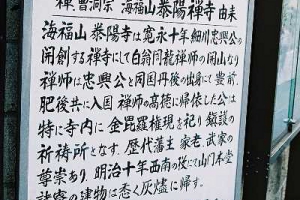 禅、曹洞宗 海福山 泰陽禅寺 由来
海福山 泰陽寺は寛永十年細川忠興公の
開創する禅寺にして白翁同龍禅師の開山なり
禅師は忠興公と同国丹後の出身にて豊前、
肥後共に入国 禅師の高徳に帰依した公は
特に寺内に 金毘羅権現を祀り 鎮護の
祈祷所となす。歴代藩主 家老 武家の
尊崇あり、明治十年西南の役にて山門本堂
諸寮の建物は悉く灰燼に帰す。